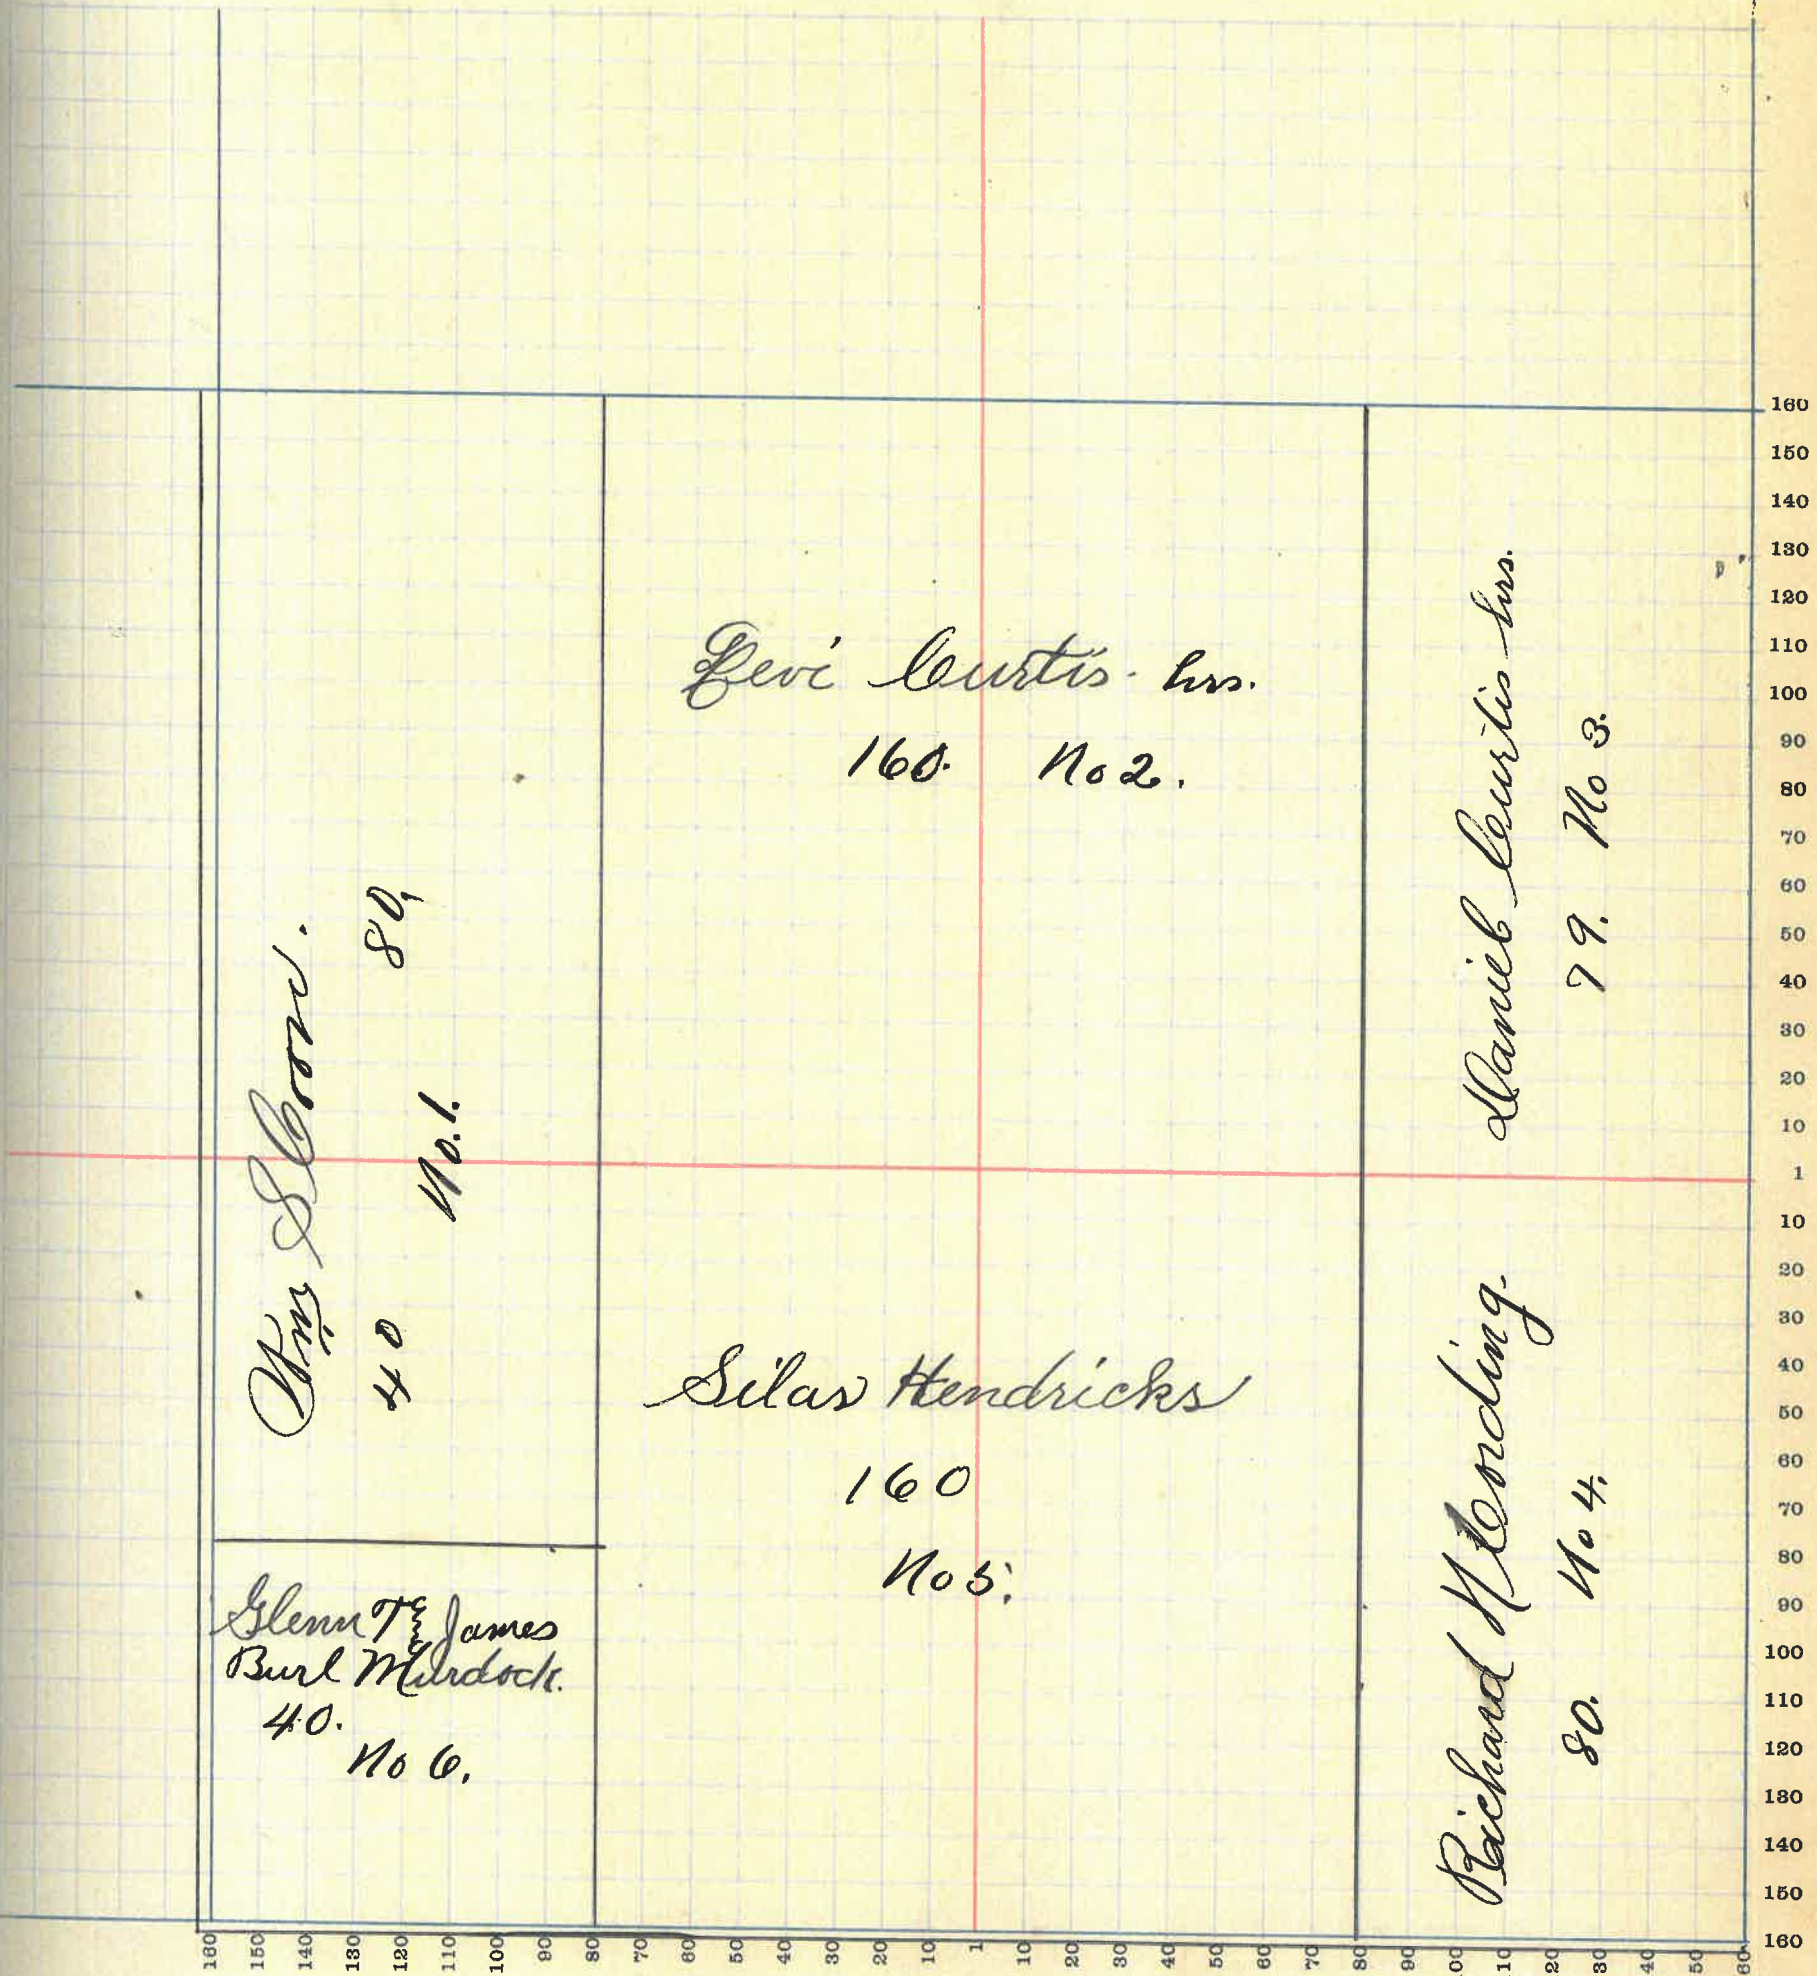 Wm S Coon.
40 80,
No. 1.
Levi Curtis hrs.
160. No 2.
Daniel Curtis hrs.
79. No 3.
Richard
80. No 4.
Silas Hendricks
160
No 5.
Glenn T & James
Burl Murdock.
40.
No 6.
160
150
140
130
120
110
100
90
80
70
60
50
40
30
20
10
1
10
20
30
40
50
60
70
80
90
100
110
120
130
140
150
160
160 150 140 130 120 110 100 90 80 70 60 50 40 30 20 10 1 10 20 30 40 50 60 70 80 90 00 10 20 30 40 50 60